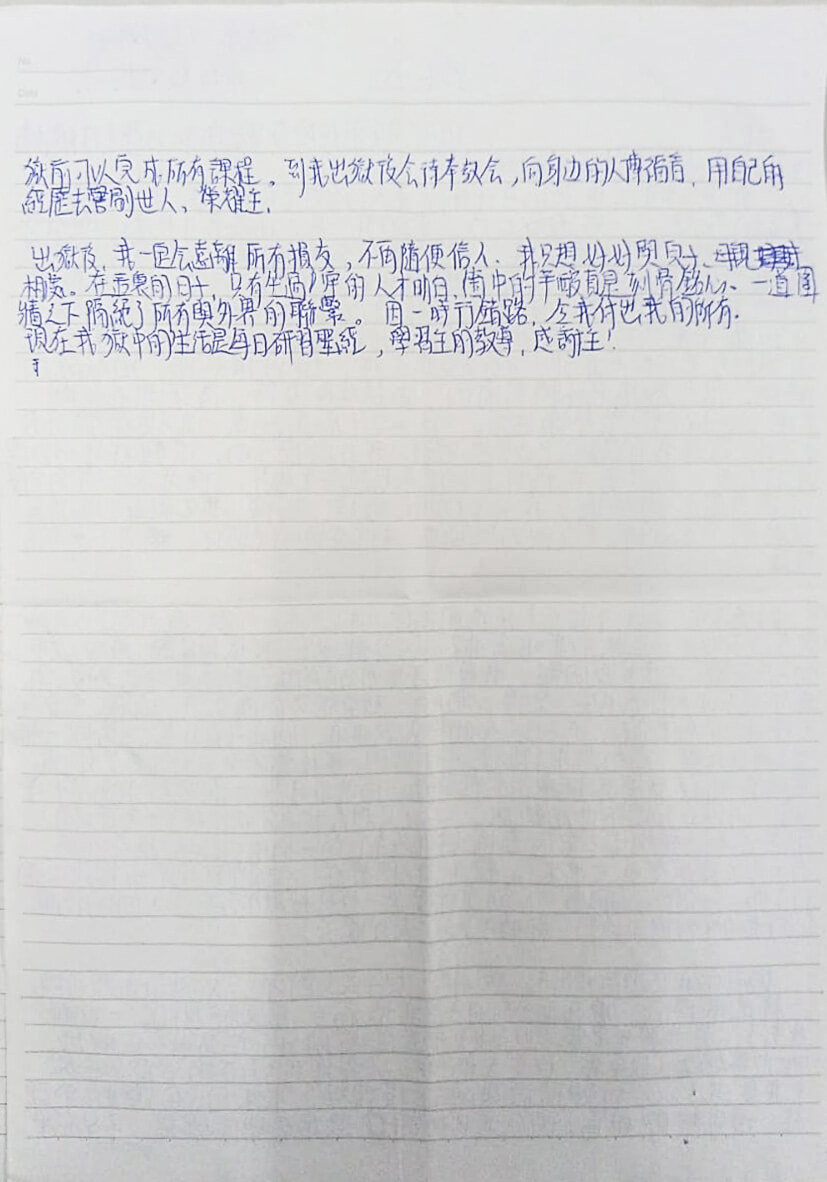 獄前可以完成所有課程。到我出獄後会待奉教会,向身边的人傳福音,用自己的
經歷去警剔世人、榮耀主.
出獄後,我一定会遠離所有損友,不再隨便信人.我只想好好
相愛。在黑裏的日子,只有坐過牢的人才明白,一道圍
牆之下隔絕了所有與外界的聯繫。因一時行錯路,令我付出我的所有.
現在我獄中的生活是每日研習聖經,學習主的教導,感謝主!